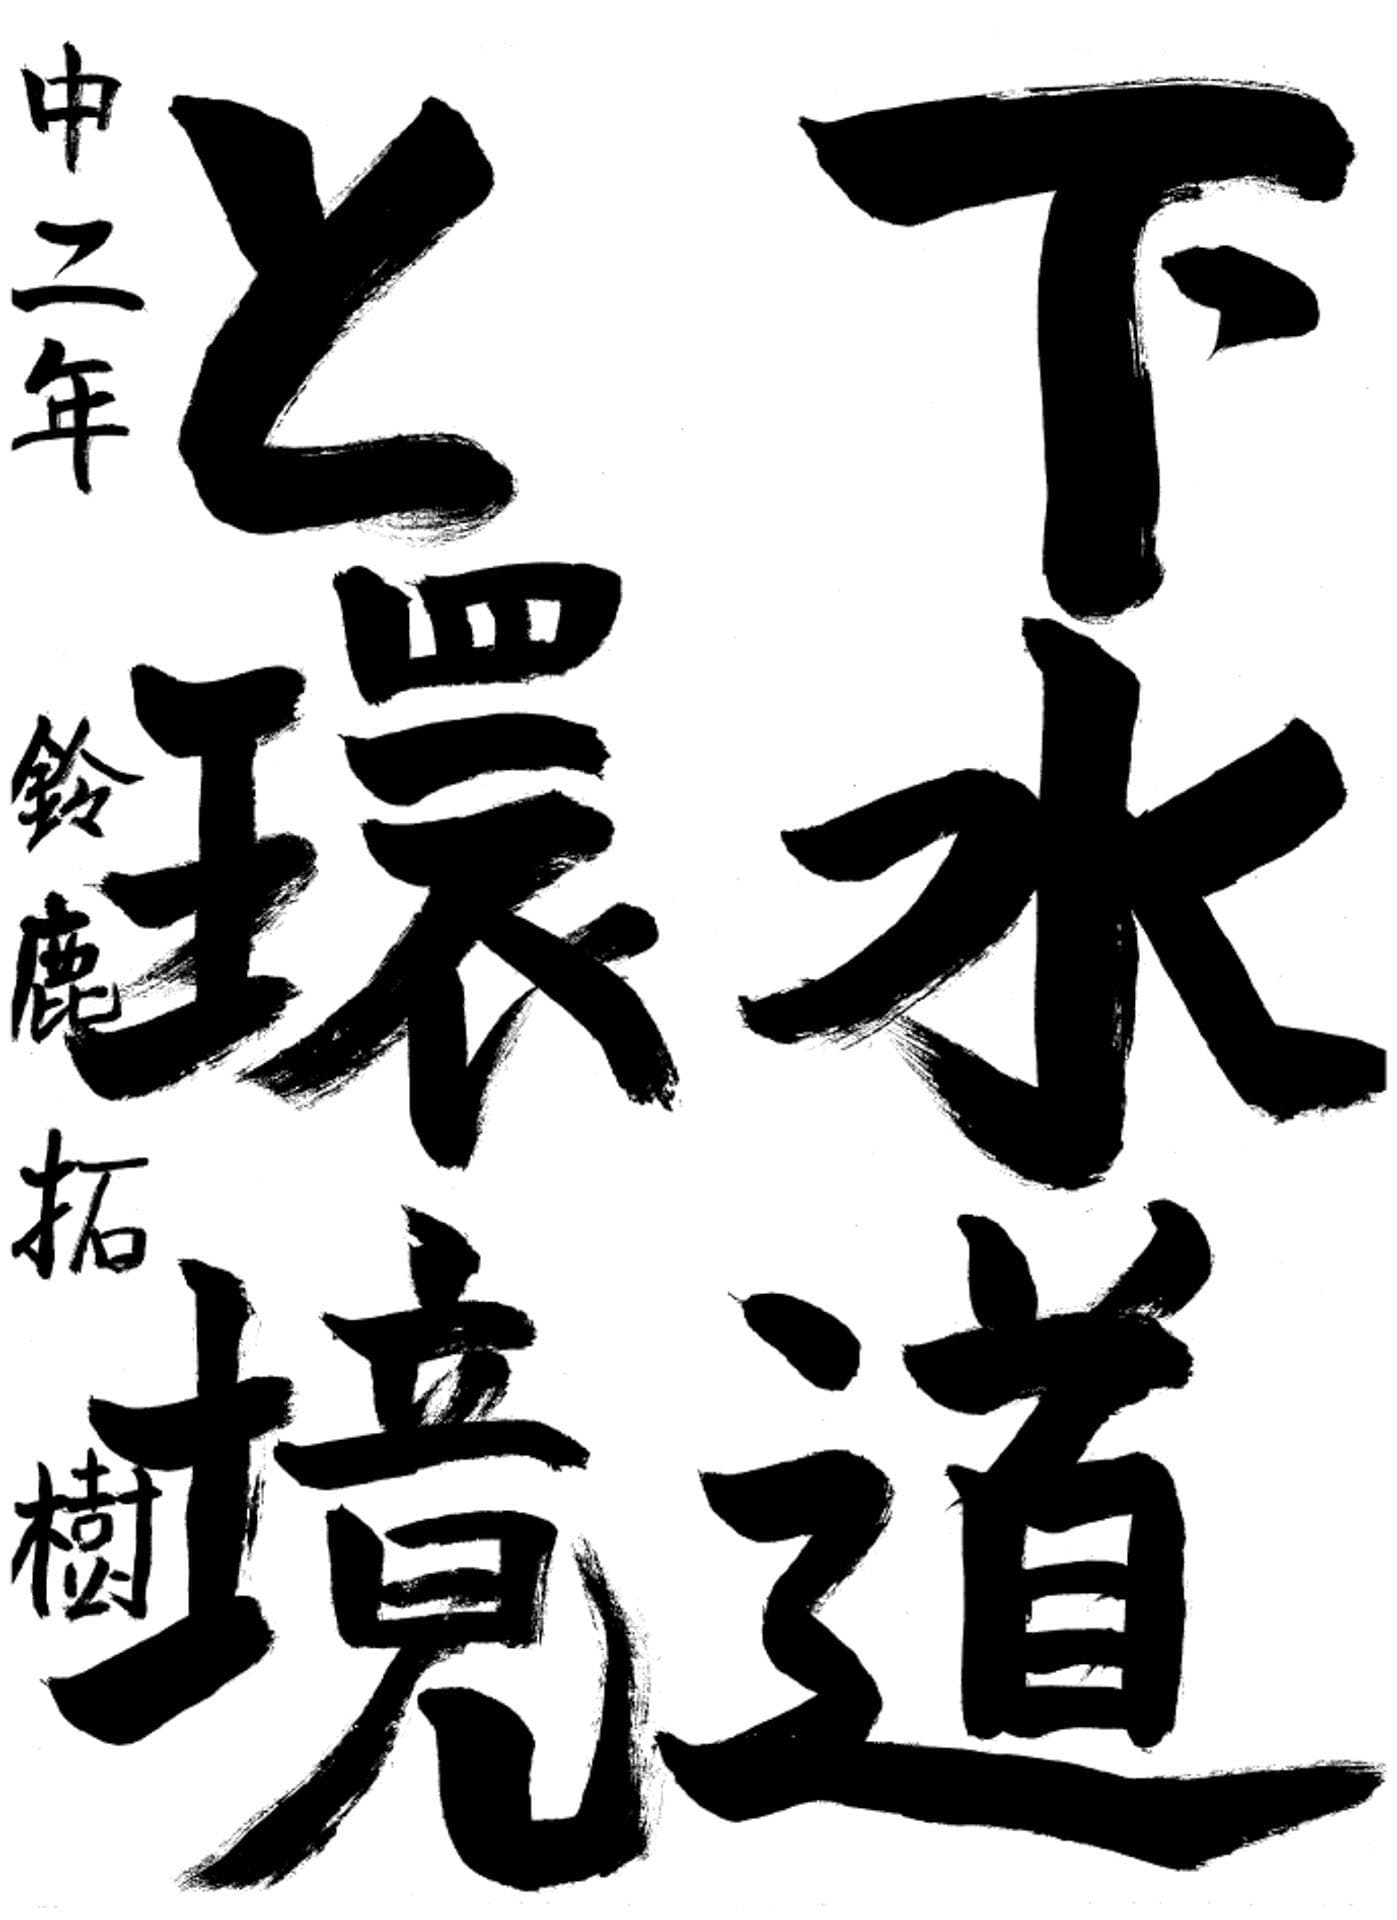 下水道
と環境
中二年 鈴鹿拓樹